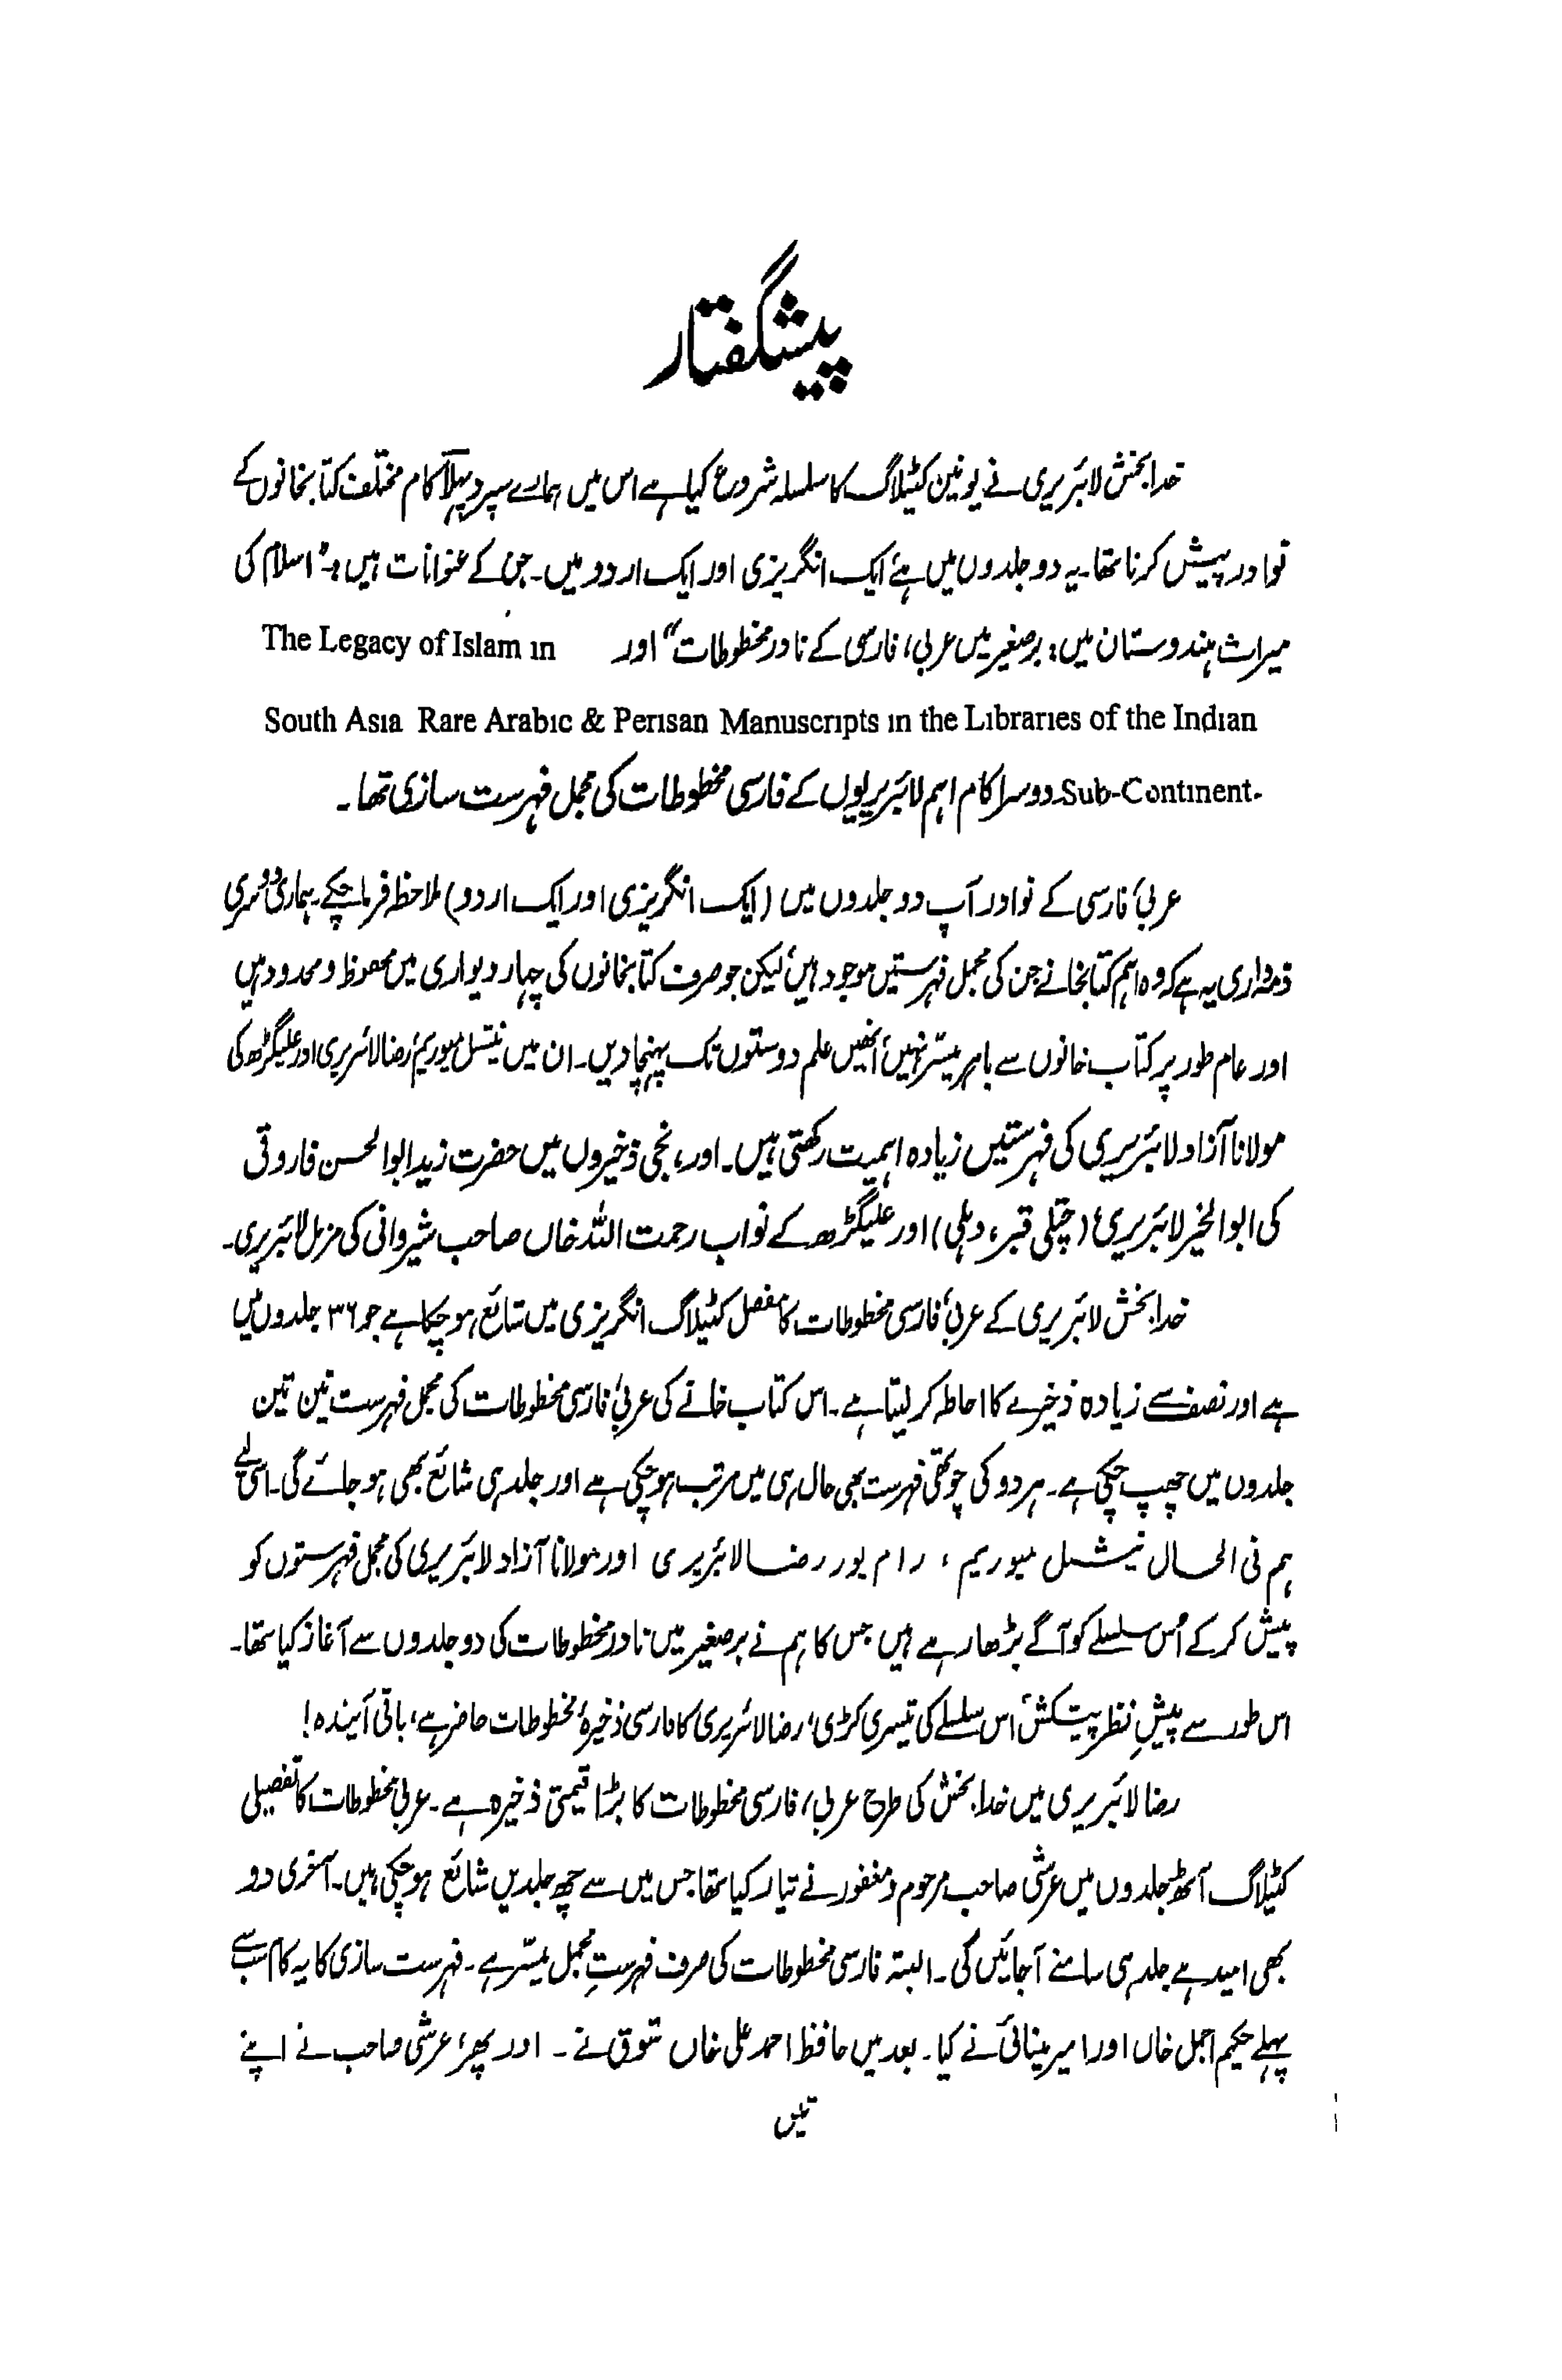 پیشگفتار
خدا بخش لائبریری نے یونین کٹیلاگ کا سلسلہ شروع کیا ہے اس میں ہمارے سپرد پہلا کام مختلف کتابخانوں کے
نوادر پیش کرنا تھا۔ یہ دو جلدوں میں ہے، ایک انگریزی اور ایک اردو میں۔ جن کے عنوانات ہیں: "اسلام کی
میراث ہندوستان میں: برصغیر میں عربی، فارسی کے نادر مخطوطات" اور The Legacy of Islam in
South Asia Rare Arabic & Perisan Manuscripts in the Libraries of the Indian
Sub-Continent- دوسرا کام اہم لائبریریوں کے فارسی مخطوطات کی مجمل فہرست سازی تھا۔
عربی، فارسی کے نوادر آپ دو جلدوں میں (ایک انگریزی اور ایک اردو) ملاحظہ فرما چکے۔ ہماری دوسری
ذمہ داری یہ ہے کہ وہ اہم کتابخانے جن کی مجمل فہرستیں موجود ہیں، لیکن جو صرف کتابخانوں کی چہار دیواری میں محفوظ و محدود ہیں
اور عام طور پر کتاب خانوں سے باہر میسّر نہیں، انھیں علم دوستوں تک پہنچا دیں۔ ان میں نیشنل میوزیم، رضا لائبریری اور علیگڑھ کی
مولانا آزاد لائبریری کی فہرستیں زیادہ اہمیت رکھتی ہیں۔ اور، نجی ذخیروں میں حضرت زید ابوالحسن فاروقی
کی ابوالخیر لائبریری، (چتلی قبر، دہلی) اور علیگڑھ کے نواب رحمت اللہ خاں صاحب شیروانی کی مزمل لائبریری۔
خدا بخش لائبریری کے عربی، فارسی مخطوطات کا مفصل کٹیلاگ انگریزی میں شائع ہو چکا ہے جو ۳۶ جلدوں میں
ہے اور نصف سے زیادہ ذخیرے کا احاطہ کر لیتا ہے۔ اس کتاب خانے کی عربی، فارسی مخطوطات کی مجمل فہرست تین تین
جلدوں میں چھپ چکی ہے۔ ہر دو کی چوتھی فہرست بھی حال ہی میں مرتب ہو چکی ہے اور جلد ہی شائع بھی ہو جائے گی۔ اسی لیے
ہم فی الحال نیشنل میوزیم، رام پور رضا لائبریری اور مولانا آزاد لائبریری کی مجمل فہرستوں کو
پیش کر کے اُس سلسلے کو آگے بڑھا رہے ہیں جس کا ہم نے برصغیر میں نادر مخطوطات کی دو جلدوں سے آغاز کیا تھا۔
اس طور سے پیشِ نظر پیشکش، اس سلسلے کی تیسری کڑی، رضا لائبریری کا فارسی ذخیرۂ مخطوطات حاضر ہے، باقی آئندہ!
رضا لائبریری میں خدا بخش کی طرح عربی، فارسی مخطوطات کا بڑا قیمتی ذخیرہ ہے۔ عربی مخطوطات کا تفصیلی
کٹیلاگ آٹھ جلدوں میں عرشی صاحب مرحوم و مغفور نے تیار کیا تھا جس میں سے چھ جلدیں شائع ہو چکی ہیں۔ آخری دو
بھی امید ہے جلد ہی سامنے آ جائیں گی۔ البتہ فارسی مخطوطات کی صرف فہرستِ مجمل میسّر ہے۔ فہرست سازی کا یہ کام سب سے
پہلے حکیم اجمل خاں اور امیر مینائی نے کیا۔ بعد میں حافظ احمد علی خاں شوق نے۔ اور پھر، عرشی صاحب نے اپنے
تیں